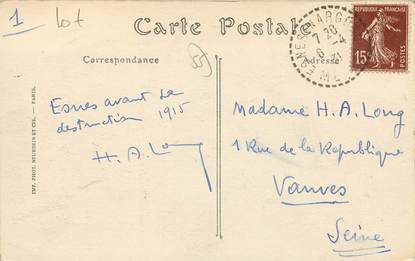 1
lot
Carte Postale
Correspondance
Adresse
RÉPUBLIQUE FRANÇAISE
15c
POSTES
7 20
6-4
31
Esnes avant sa
destruction 1915
H. A. Long
Madame H. A. Long
1 Rue de la Republique
Vanves
Seine
IMP. PHOT. NEURDEIN ET CIE. - PARIS.